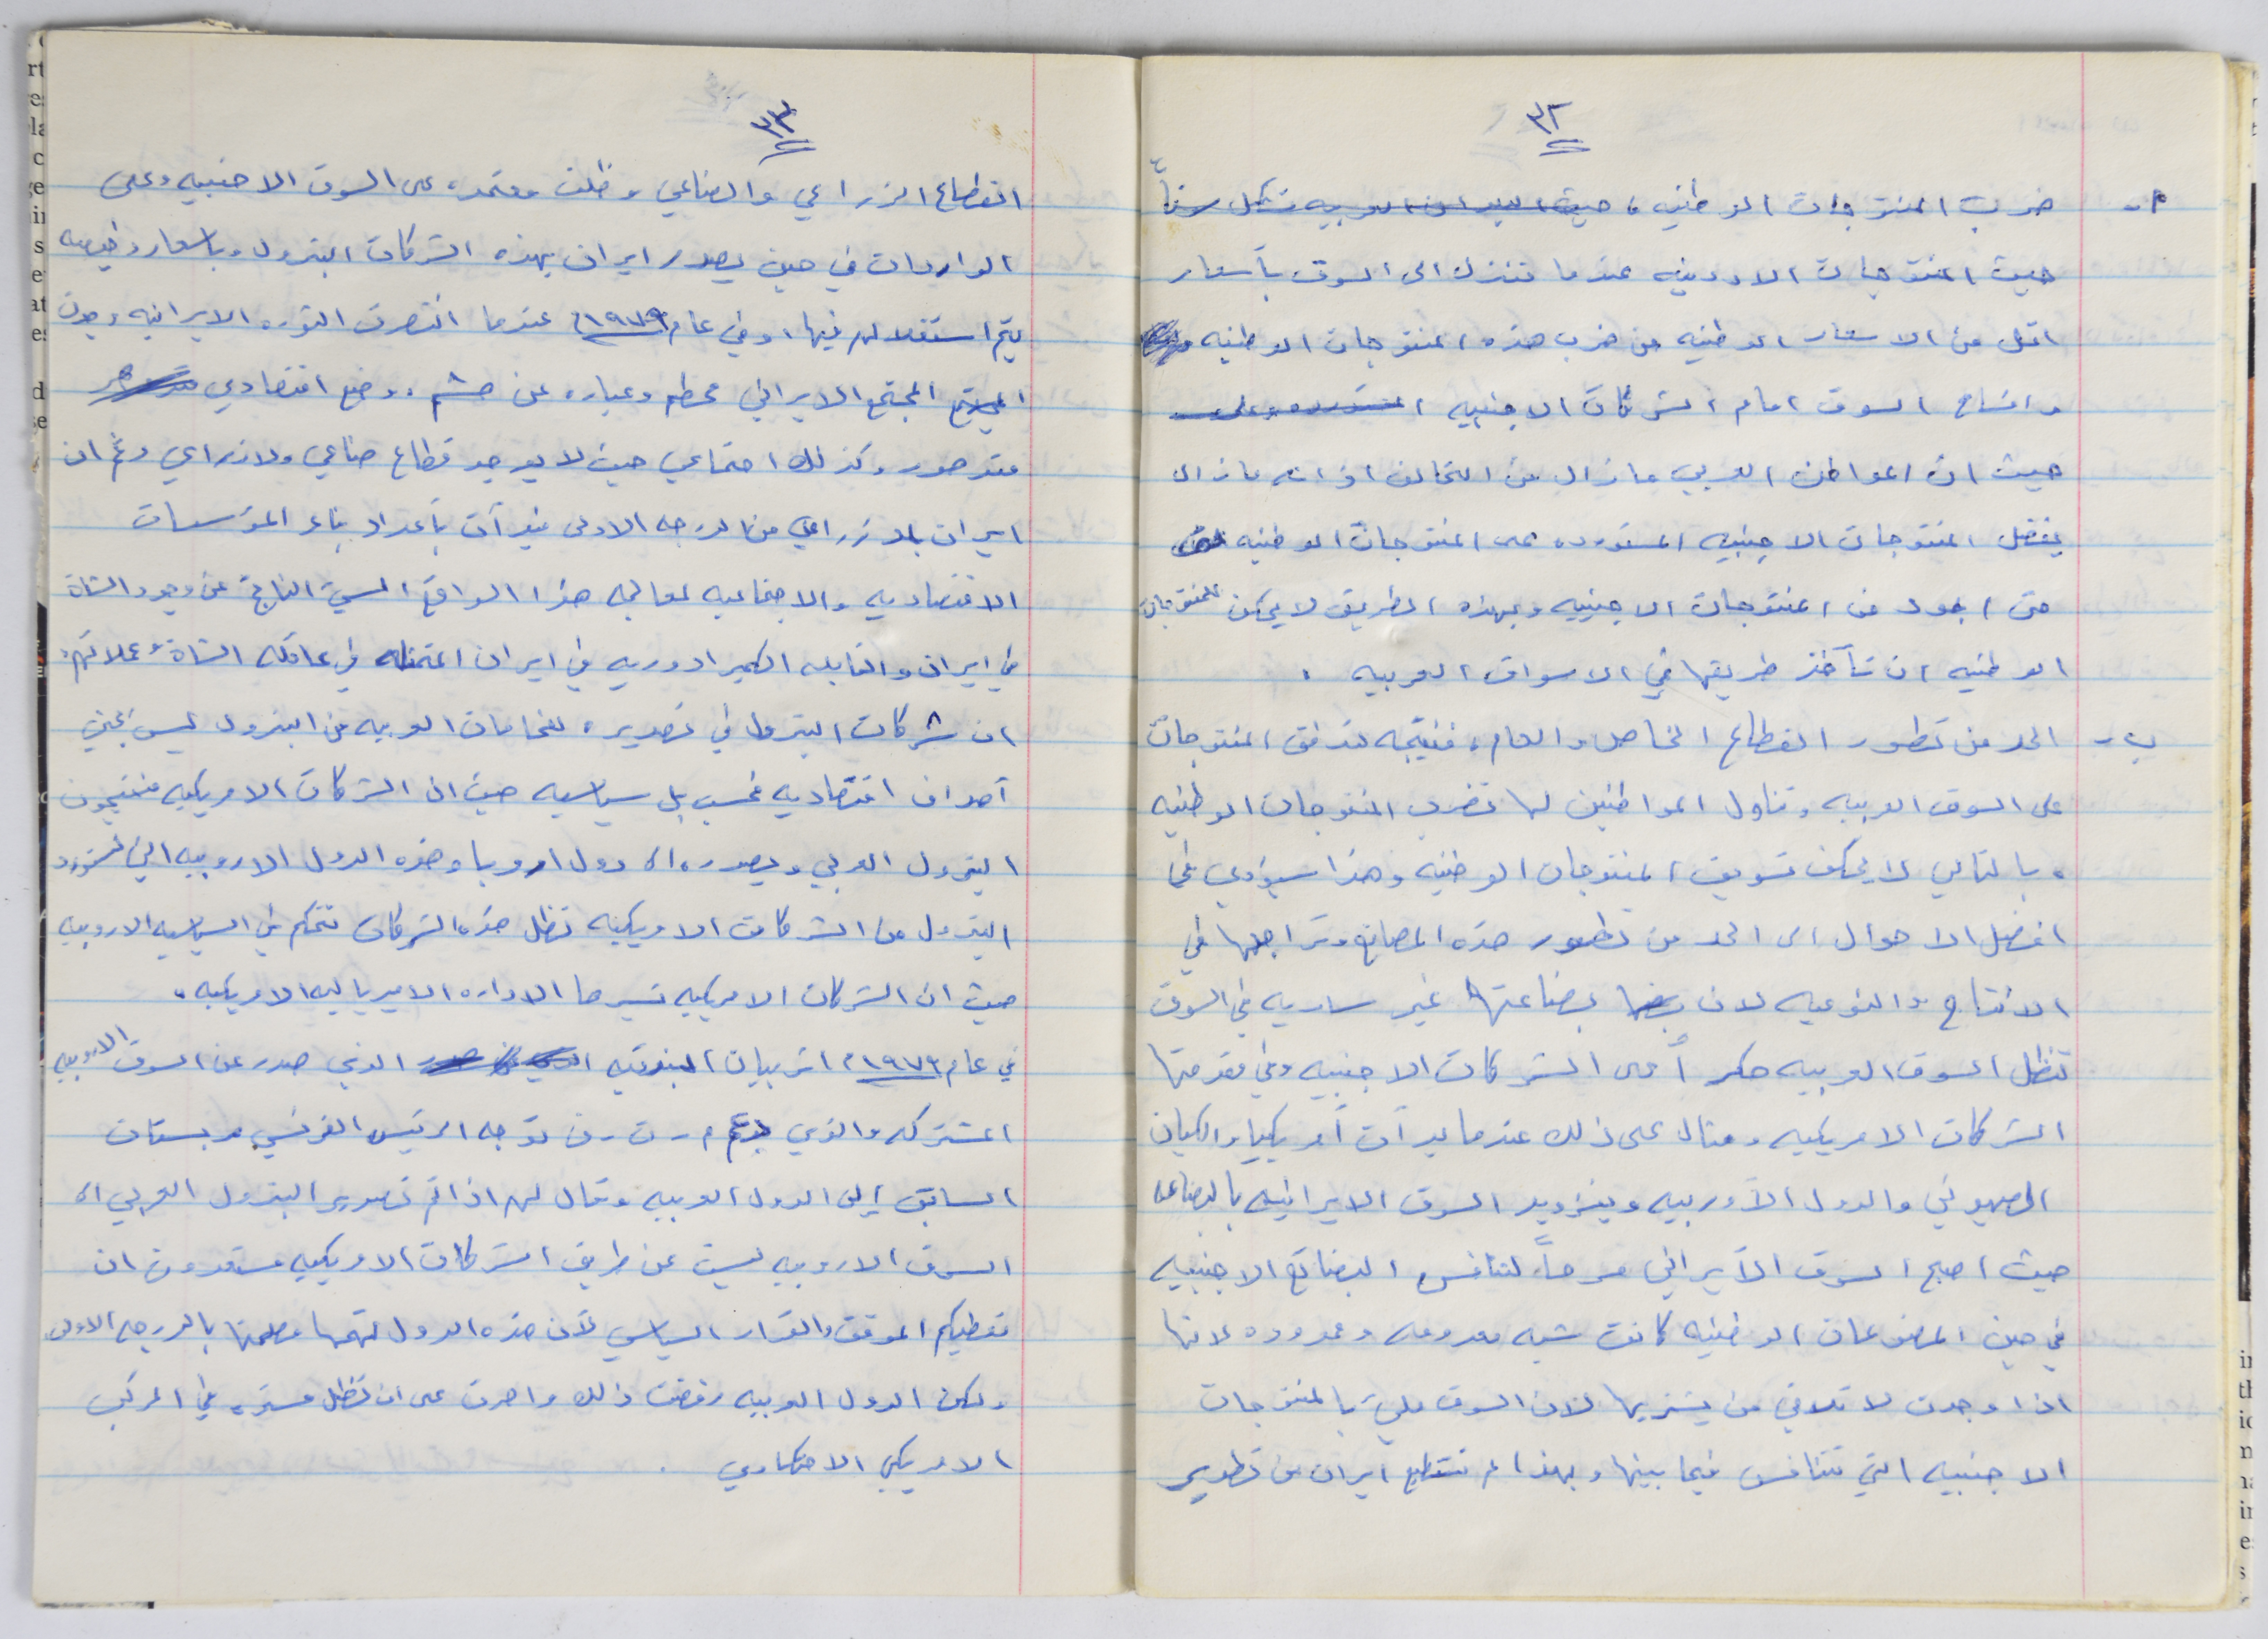 ٣٢
أ- ضرب المنتوجات الوطنيه، حيث البلدان العربيه تشكل سوقاً
حيث المنتوجات الاوربيه عندما تنزل الى السوق بأسعار
اقل من الاسعار الوطنيه من ضرب هذه المنتوجات الوطنيه
وافساح السوق امام الشركات الاجنبيه المستورده وعلى
حيث ان المواطن العربي مازال من التخالف اذ انه مازال
يفضل المنتوجات الاجنبيه المستورده على المنتوجات الوطنيه
حتى اجود من المنتوجات الاجنبيه وبهذه الطريق لا يمكن للمنتوجات
الوطنيه ان تأخذ طريقها في الاسواق العربيه .
ب- الحد من تطور القطاع الخاص والعام، فنتيجه تدفق المنتوجات
على السوق العربيه وتناول المواطنين لها تضرب المنتوجات الوطنيه
وبالتالي لا يمكن تسويق المنتوجات الوطنيه وهذا سيؤدي في
افضل الاحوال الى الحد من تطور هذه المصانع وتراجعها في
الانتاج والنوعيه لان بضاعتها غير ساريه في السوق
تظل السوق العربيه حكراً على الشركات الاجنبيه وفي مقدمتها
الشركات الامريكيه ومثال على ذلك عندما بدأت أمريكيا والكيان
الصهيوني والدول الأوربيه وبتزويد السوق الايرانيه بالبضاعه
حيث اصبح السوق الأيراني مرحاً لتنافس البضائع الاجنبيه
في حين المصنوعات الوطنيه كانت شبه معدومه ومحدوده لانها
اذا وجدت لا تلاقي من يشتريها لان السوق مليئ بالمنتوجات
الاجنبيه التي تتنافس فيما بينها وبهذا لم تستطع ايران من تطوير
٣٣
القطاع الزراعي والصناعي وظلت معتمده على السوق الاجنبيه وعلى
الواردات في حين يصدر ايران بهذه الشركات البترول وباسعار رخيصه
يتم استغلالهم فيها، وفي عام ١٩٧٩م عندما انتصرت الثوره الايرانيه وجدت
المجتمع الايراني محطم وعباره عن هشم، وضع اقتصادي
متدهور وكذلك اجتماعي حيث لا يوجد قطاع صناعي ولا زراعي رغم ان
ايران بلد زراعي من الدرجه الاولى فبدأت بأعداد بناء المؤسسات
الاقتصاديه والاجتماعيه لمعالجه هذا الواقع السيئ الناتج عن وجود الشاة
في ايران والقابله الكمبرادوريه في ايران المتمثله في عائلة الشاة وعملائهم،
ان شركات البترول في تصديره للخامات العربيه من البترول ليس لجني
أهداف اقتصاديه فحسب بل سياسيه حيث ان الشركات الامريكيه فينتجون
البترول العربي ويصدره الى دول اروبا وهذه الدول الاروبيه التي تستورد
البترول من الشركات الامريكيه تظل هذه الشركات تتحكم في السياسيه الاروبيه
حيث ان الشركات الامريكيه تسيرها الاداره الامبرياليه الامريكيه.
في عام ١٩٧٦م اثر بيان البندقيه الذي صدر عن السوق الاروبيه
المشتركه والذي بدعم م ت ف توجه الرئيس الفرنسي دبستان
السابق إلى الدول العربيه وقال لهم اذا تم تصدير البترول العربي الى
السوق الاروبيه ليست عن طريق الشركات الامريكيه مستعدون ان
نعطيكم الموقف والقرار السياسي لأن هذه الدول تهمها مصلحتها بالدرجه الاولى
ولكن الدول العربيه رفضت ذلك واصرت على ان تظل مستمره في المركب
الامريكي الاحتكاري .